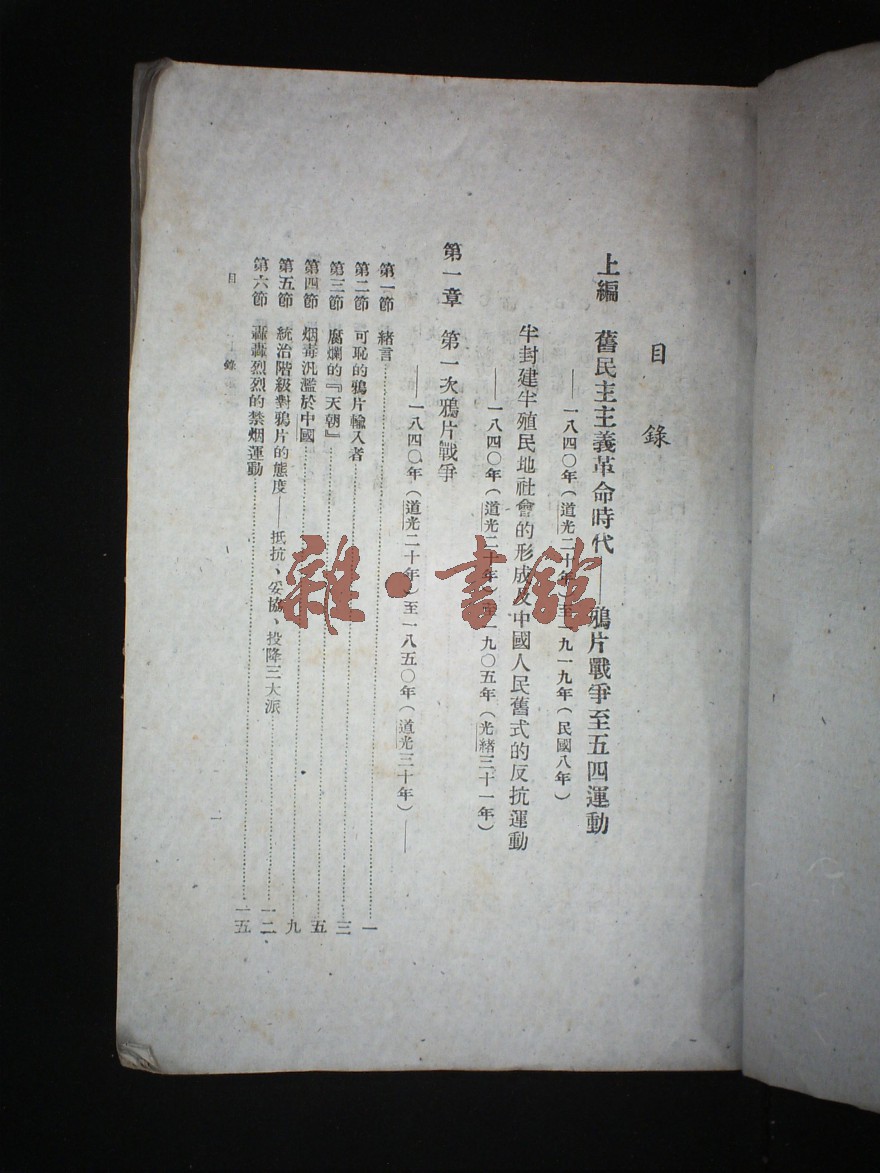 目錄
上編　舊民主主義革命時代——鴉片戰爭至五四運動
——一八四〇年（道光二十年）至一九一九年（民國八年）
半封建半殖民地社會的形成及中國人民舊式的反抗運動
——一八四〇年（道光二十年）至一九〇五年（光緒三十一年）
第一章　第一次鴉片戰爭
——一八四〇年（道光二十年）至一八五〇年（道光三十年）——
第一節　緒言……一
第二節　可恥的鴉片輸入者……三
第三節　腐爛的『天朝』……五
第四節　烟毒汎濫於中國……九
第五節　統治階級對鴉片的態度——抵抗、妥協、投降三大派……一二
第六節　轟轟烈烈的禁烟運動……一五
目　錄　一
雜·書館